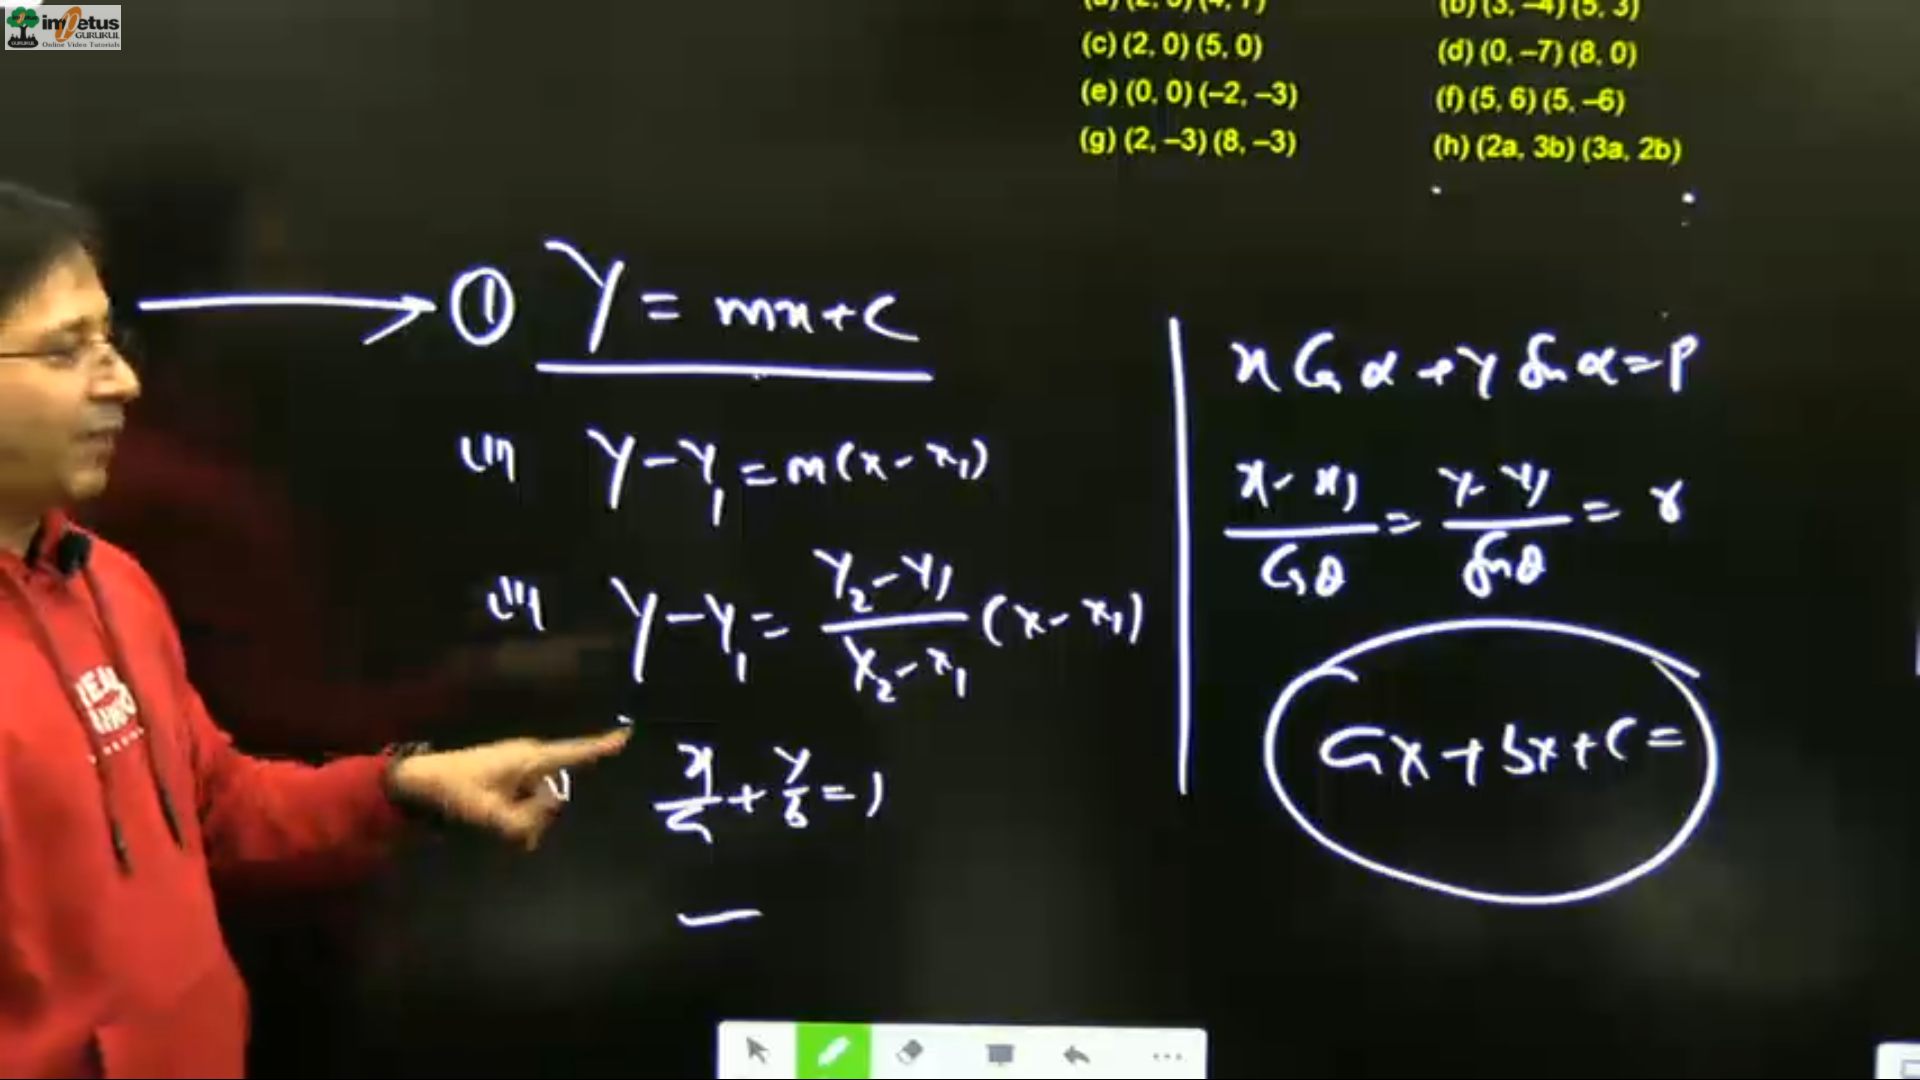 impetus
GURUKUL
Online Video Tutorials
(b) (3, –4) (5, 3)
(c) (2, 0) (5, 0)
(d) (0, –7) (8, 0)
(e) (0, 0) (–2, –3)
(f) (5, 6) (5, –6)
(g) (2, –3) (8, –3)
(h) (2a, 3b) (3a, 2b)
① Y = mx+c
(ii) y-y₁ = m(x-x₁)
(iii) y-y₁ = y₂-y₁/x₂-x₁ (x-x₁)
x/a + y/b = 1
x Cos α + y Sin α = p
x-x₁/Cos θ = y-y₁/Sin θ = r
ax+bx+c=